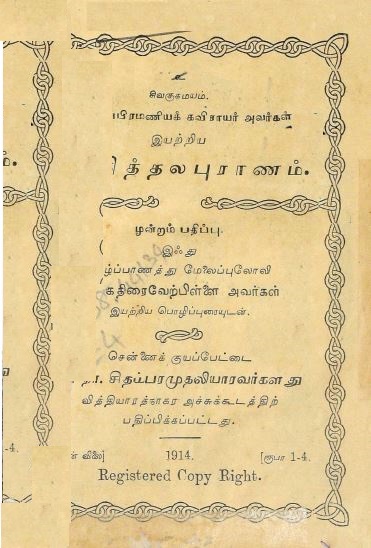 உ
சிவகுகமயம்.
பிரமணியக் கவிராயர் அவர்கள்
இயற்றிய
த்தலபுராணம்.
மூன்றாம் பதிப்பு.
இஃது
ழ்ப்பாணத்து மேலைப்புலோலி
கதிரைவேற்பிள்ளை அவர்கள்
இயற்றிய பொழிப்புரையுடன்.
சென்னைக் குயப்பேட்டை
சிதம்பரமுதலியாரவர்களது
வித்தியாரத்நாகர அச்சுக்கூடத்திற்
பதிப்பிக்கப்பட்டது.
விலை] 1914. [ரூபா 1-4.
Registered Copy Right.
ம்.
-4.